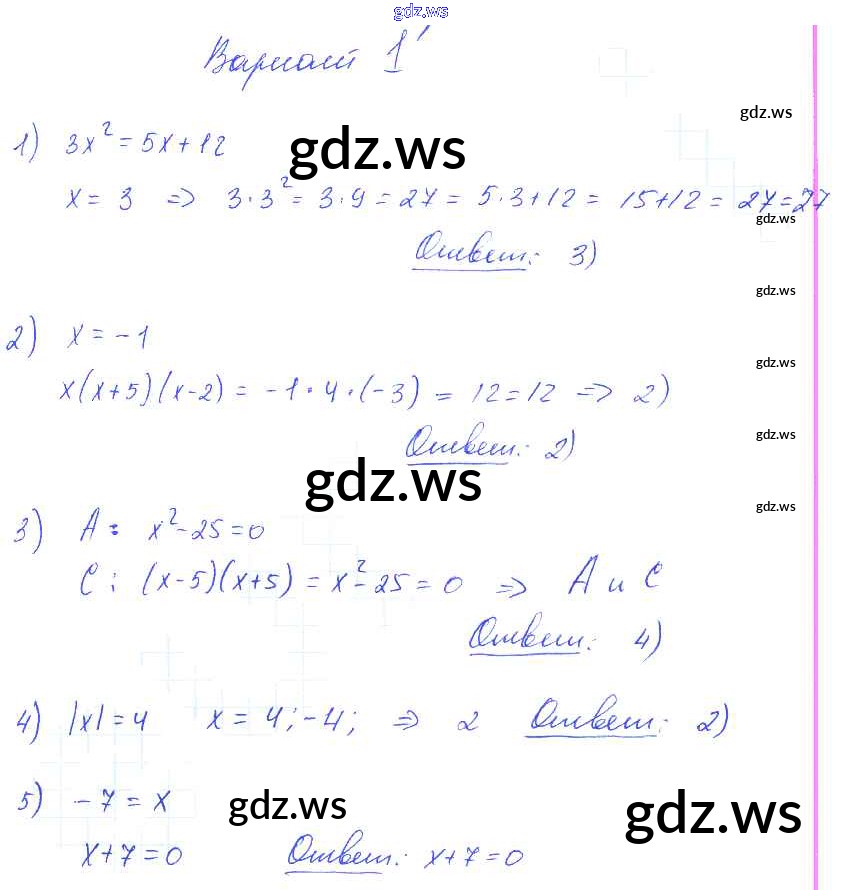 gdz.ws
Вариант 1'
gdz.ws
1) 3x² = 5x + 12
gdz.ws
x = 3 => 3·3² = 3·9 = 27 = 5·3+12 = 15+12 = 27 = 27
gdz.ws
Ответ: 3)
gdz.ws
2) x = -1
gdz.ws
x(x+5)(x-2) = -1·4·(-3) = 12 = 12 => 2)
gdz.ws
Ответ: 2)
gdz.ws
gdz.ws
3) A: x² - 25 = 0
C: (x-5)(x+5) = x² - 25 = 0 => A и C
Ответ: 4)
4) |x| = 4 x = 4; -4; => 2 Ответ: 2)
5) -7 = x
gdz.ws
gdz.ws
x+7=0 Ответ: x+7=0